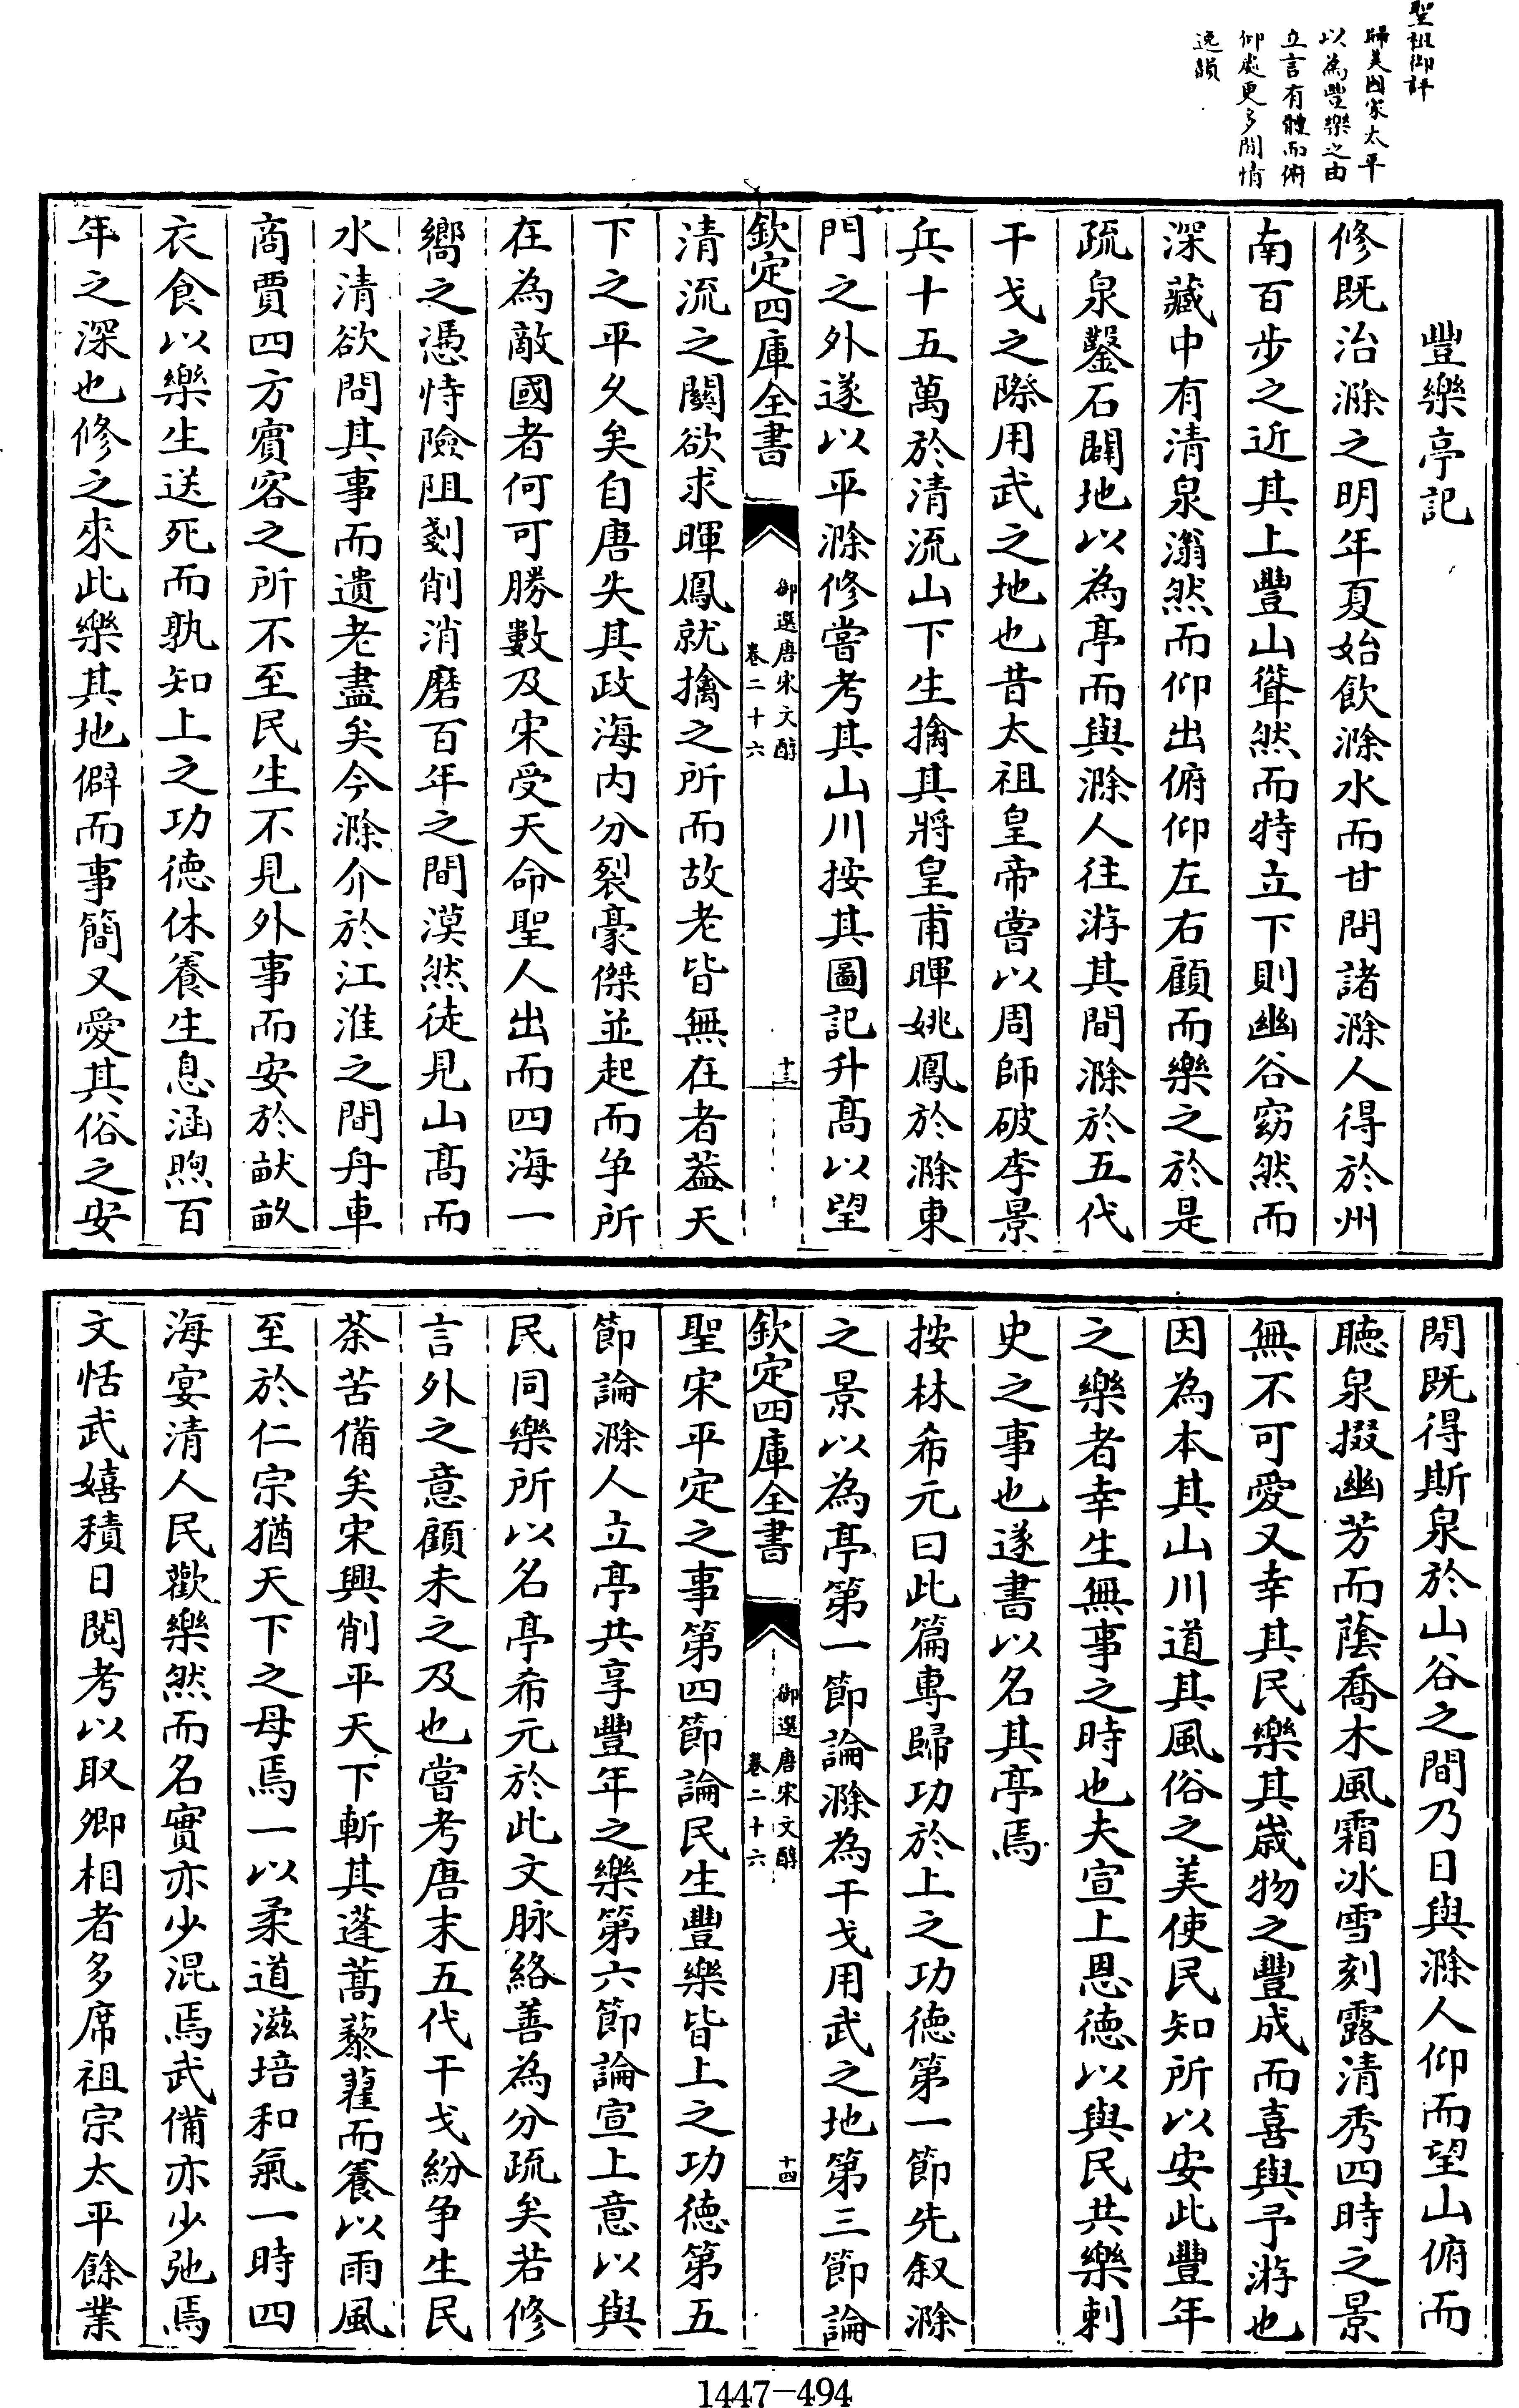 聖祖御評
歸美國家太平
以為豐樂之由
立言有體而俯
仰處更多閒情
逸韻
豐樂亭記
修既治滁之明年夏始飲滁水而甘問諸滁人得於州
南百步之近其上豐山聳然而特立下則幽谷窈然而
深藏中有清泉滃然而仰出俯仰左右顧而樂之於是
疏泉鑿石闢地以為亭而與滁人往游其間滁於五代
干戈之際用武之地也昔太祖皇帝嘗以周師破李景
兵十五萬於清流山下生擒其將皇甫暉姚鳳於滁東
門之外遂以平滁修嘗考其山川按其圖記升髙以望
欽定四庫全書
御選唐宋文醇
卷二十六
十三
清流之關欲求暉鳳就擒之所而故老皆無在者葢天
下之平久矣自唐失其政海内分裂豪傑並起而争所
在為敵國者何可勝數及宋受天命聖人出而四海一
嚮之憑恃險阻剗削消磨百年之間漠然徒見山髙而
水清欲問其事而遺老盡矣今滁介於江淮之間舟車
商賈四方賓客之所不至民生不見外事而安於畎畝
衣食以樂生送死而孰知上之功德休養生息涵煦百
年之深也修之來此樂其地僻而事簡又愛其俗之安
閒既得斯泉於山谷之間乃日與滁人仰而望山俯而
聽泉掇幽芳而蔭喬木風霜冰雪刻露清秀四時之景
無不可愛又幸其民樂其歲物之豐成而喜與予游也
因為本其山川道其風俗之美使民知所以安此豐年
之樂者幸生無事之時也夫宣上恩德以與民共樂刺
史之事也遂書以名其亭焉
按林希元曰此篇專歸功於上之功德第一節先叙滁
之景以為亭第一節論滁為干戈用武之地第三節論
欽定四庫全書
御選唐宋文醇
卷二十六
十四
聖宋平定之事第四節論民生豐樂皆上之功德第五
節論滁人立亭共享豐年之樂第六節論宣上意以與
民同樂所以名亭希元於此文脉絡善為分疏矣若修
言外之意顧未之及也嘗考唐末五代干戈紛争生民
荼苦備矣宋興削平天下斬其蓬蒿藜藋而養以雨風
至於仁宗猶天下之母焉一以柔道滋培和氣一時四
海宴清人民歡樂然而名實亦少混焉武備亦少弛焉
文恬武嬉積日閱考以取卿相者多席祖宗太平餘業
1447-494